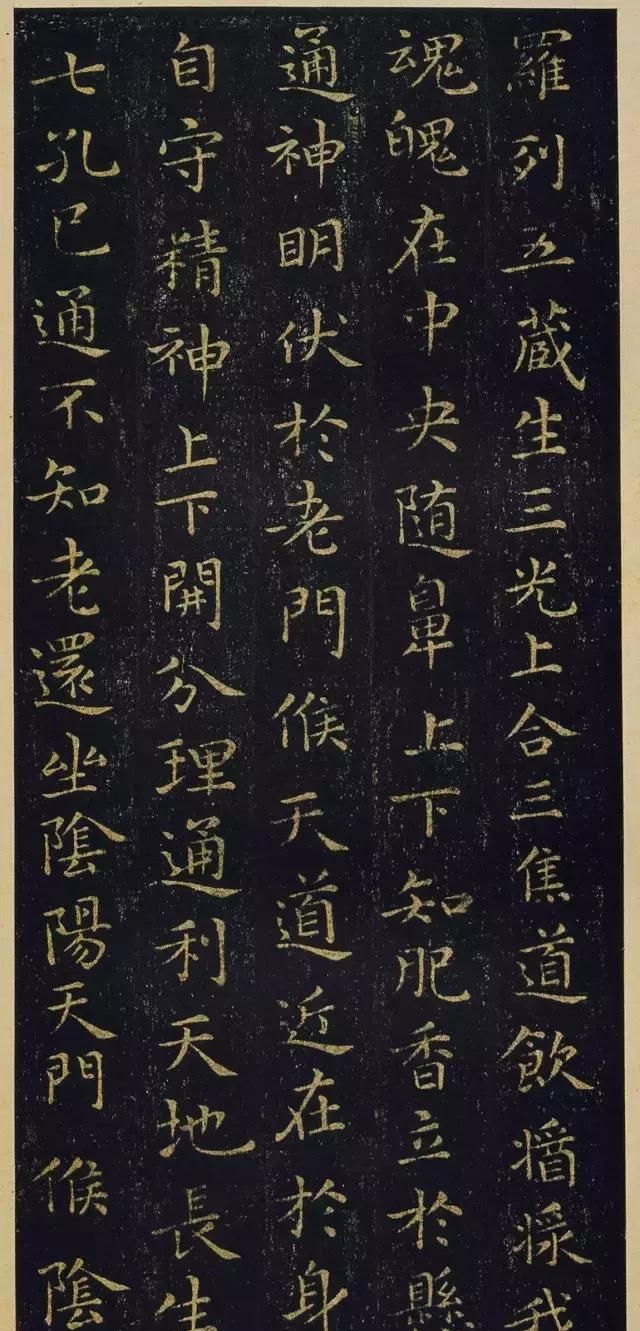 羅列五藏生三光上合三焦道飲醬漿我
魂魄在中央随鼻上下知肥香立於縣
通神明伏於老門候天道近在於身
自守精神上下開分理通利天地長生
七孔已通不知老還坐陰陽天門候陰